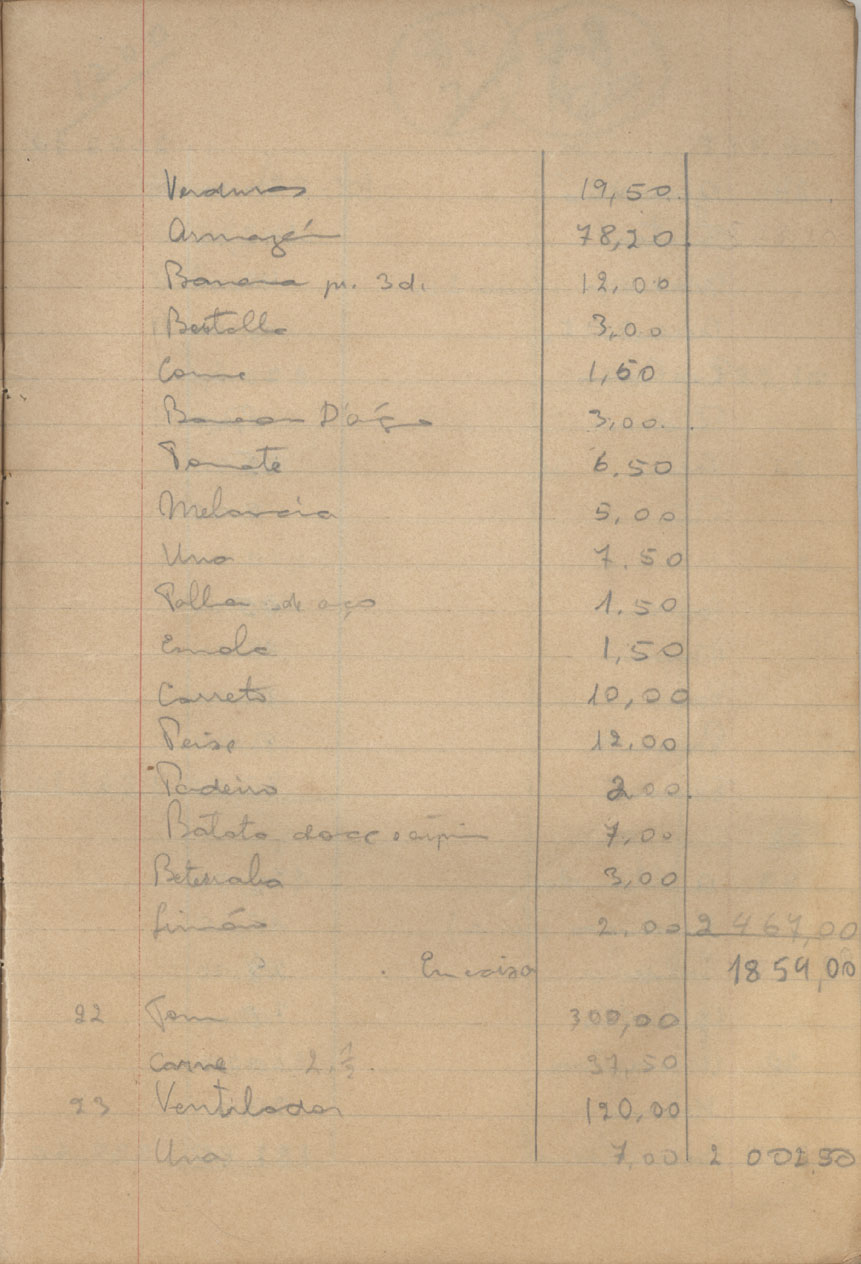 Verduras 19,50
Armazén 78,20
Banana p. 3 d. 12,00
3,00
Carne 1,60
D'água 3,00.
Tomate 6.50
Melancia 5,00
Uva 7.50
Palha de aço 1.50
Esmola 1,50
Carreto 10,00
Peixe 12.00
Padeiro 2 00.
Batata doce e aipim 7,00
Beterraba 3,00
Limão 2.00 2 467,00
Em caixa 1859,00
22 300,00
Carne 2. ½. 37,50
23 Ventilador 120,00
Uva 7,00 2 002,50